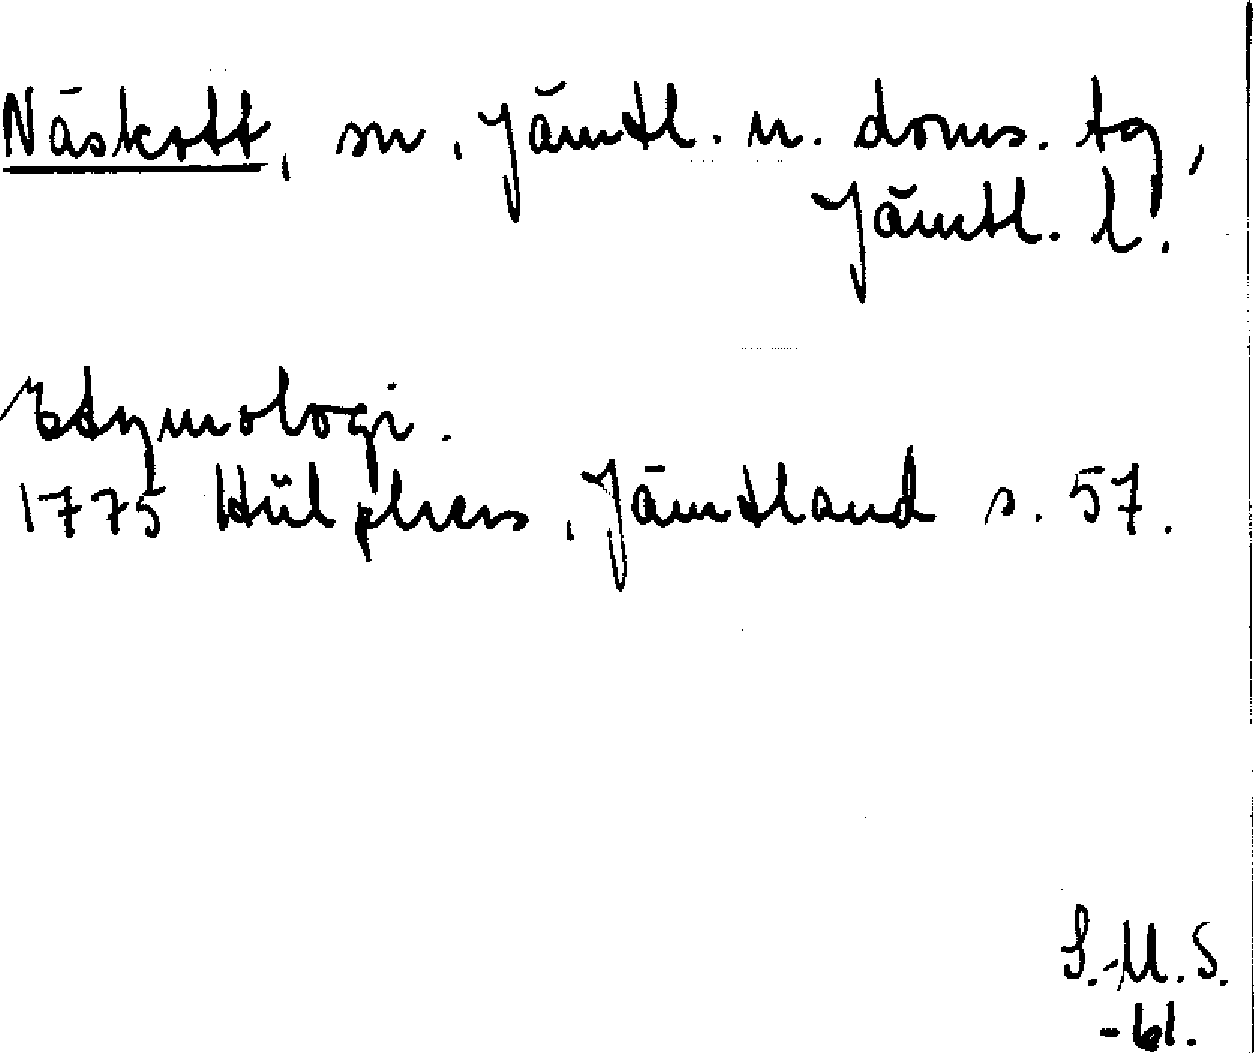 Näskott, sn, Jämtl. n. doms. tg,
Jämtl. l.
Etymologi.
1775 Hülphers, Jämtland s. 57.
S.-U.S.
-61.